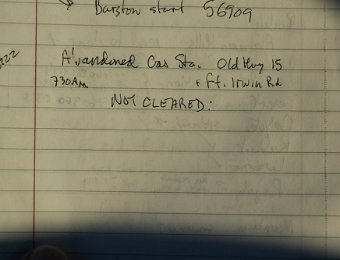 Barstow start 56909
Abandoned Gas Sta. Old Hwy 15
730AM + Ft. Irwin Rd
NOT CLEARED: